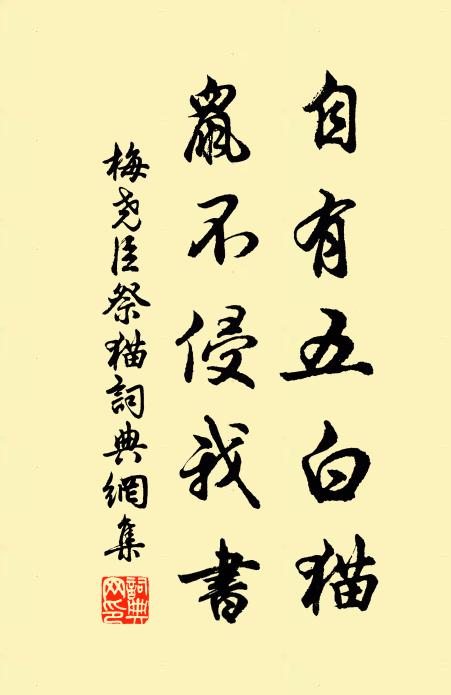 自有五白猫
鼠不侵我書
梅尧臣祭猫詞典網集
詞典
网印